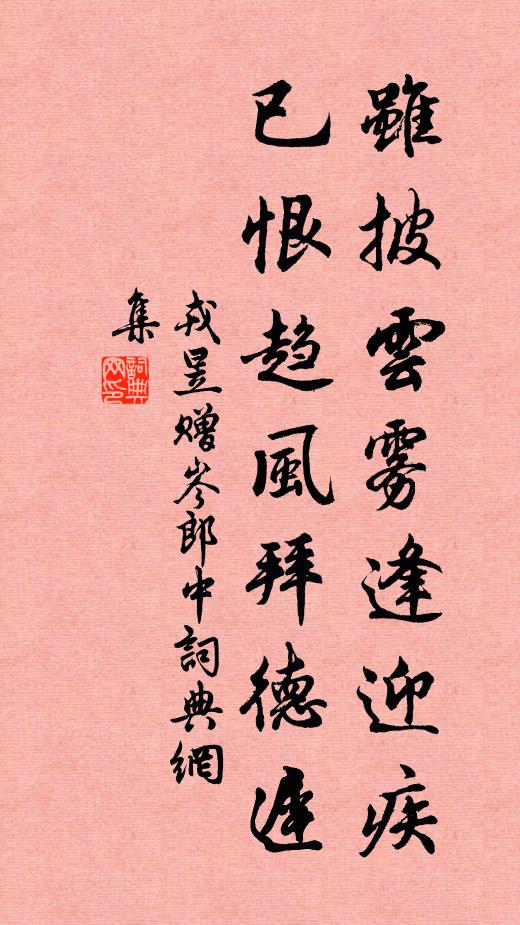 雖披雲霧逢迎疾
已恨趨風拜德遲
戎昱贈岑郎中詞典網
集
詞典
网印